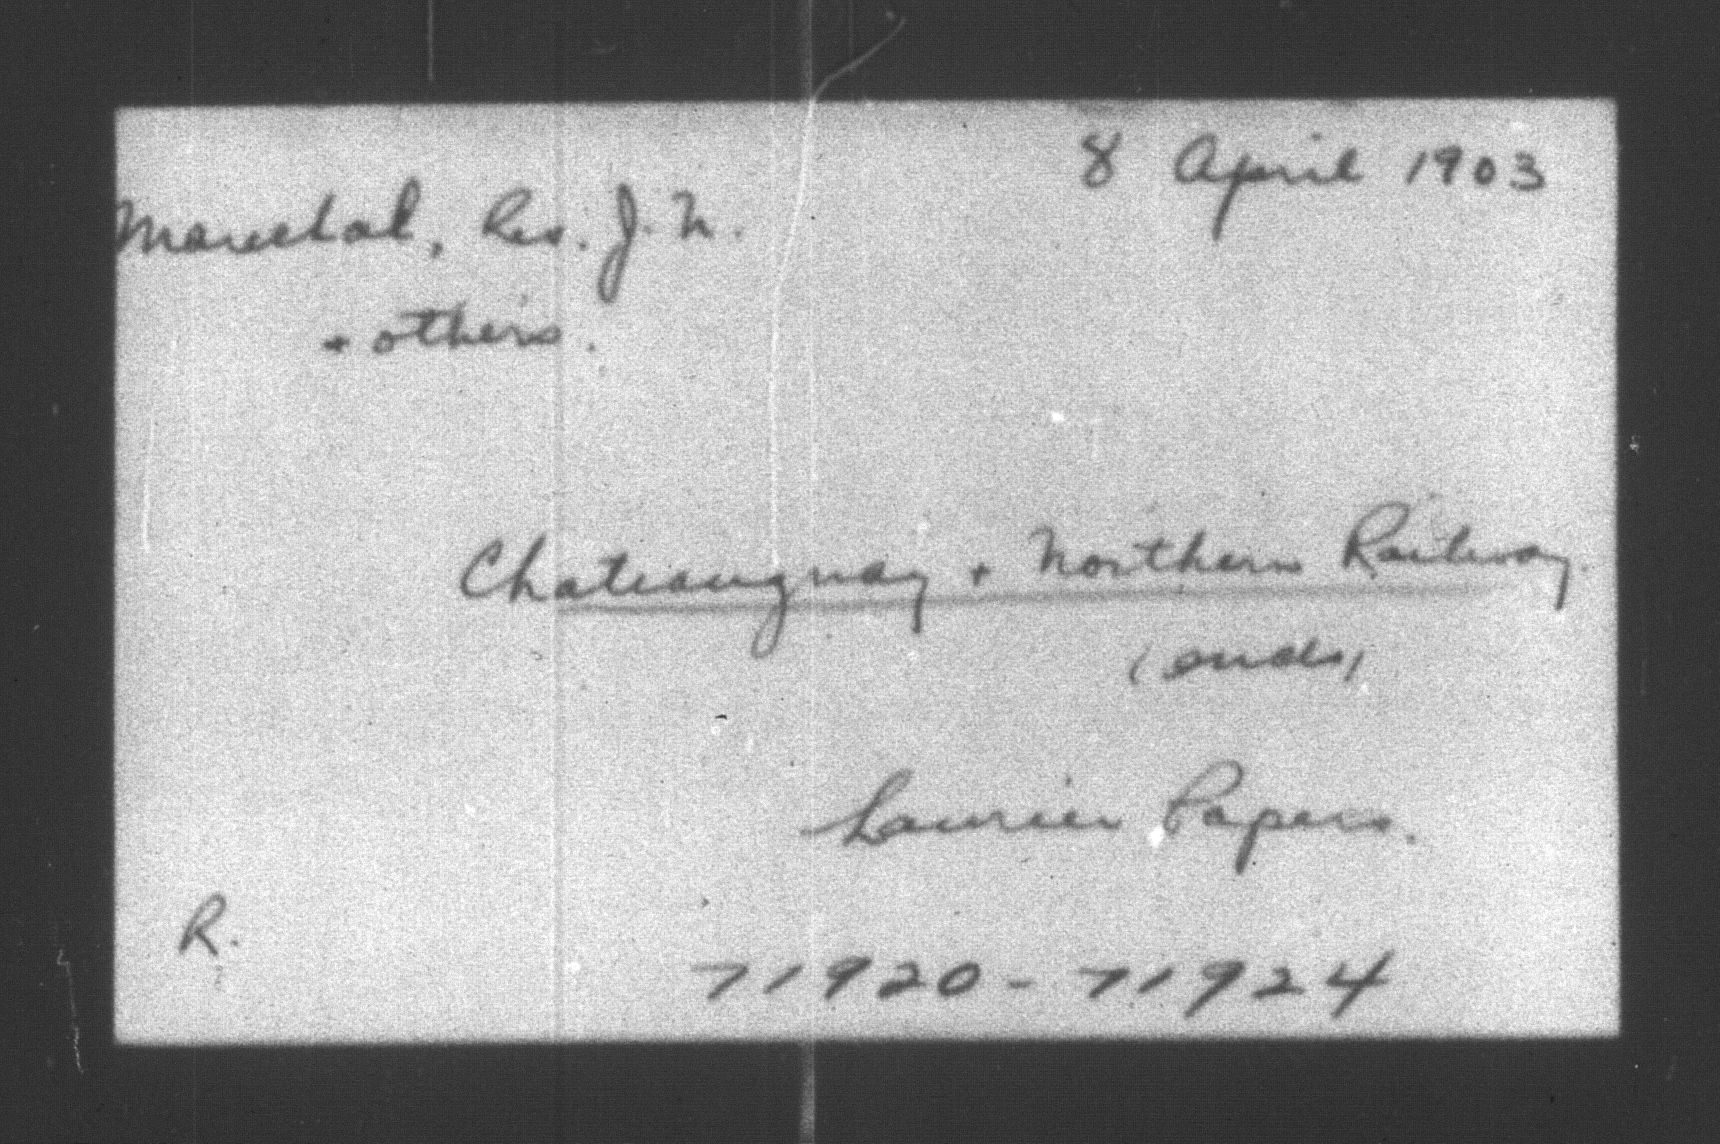 8 April 1903
Marechal, Rev. J. N.
+ others.
Chateauguay + Northern Railway.
(encls)
Laurier Papers.
R.
71920-71924